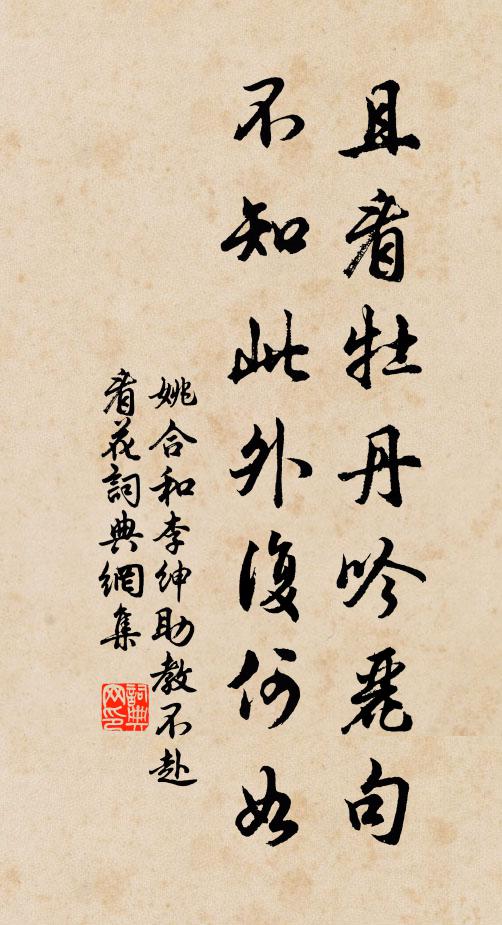 且看牡丹吟麗句
不知此外復何如
姚合和李紳助教不赴
看花詞典網集
詞典
网印